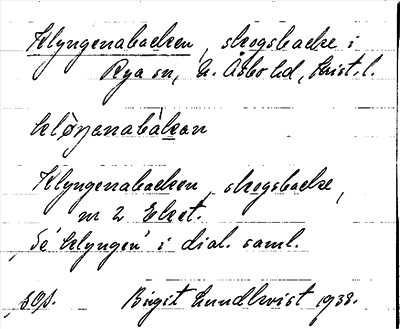 Klyngenabacken, skogsbacke i
Rya sn, N. Åsbo hd, Krist. l.
kløŋanabàkan
Klyngenabacken, skogsbacke,
m 2 Eket.
Se 'klyngen' i dial. saml.
Birgit Lundkvist 1938.